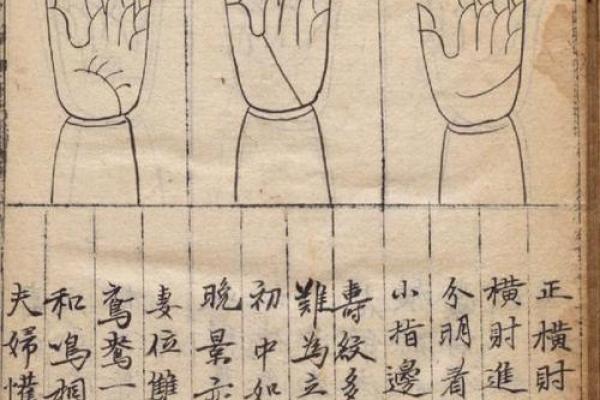 正橫財
橫財進
分明看
小指邊
壽紋多
難為立
初中如
晚景亦
妻位雙
鴛鴦一
和鳴桐
夫婦懽